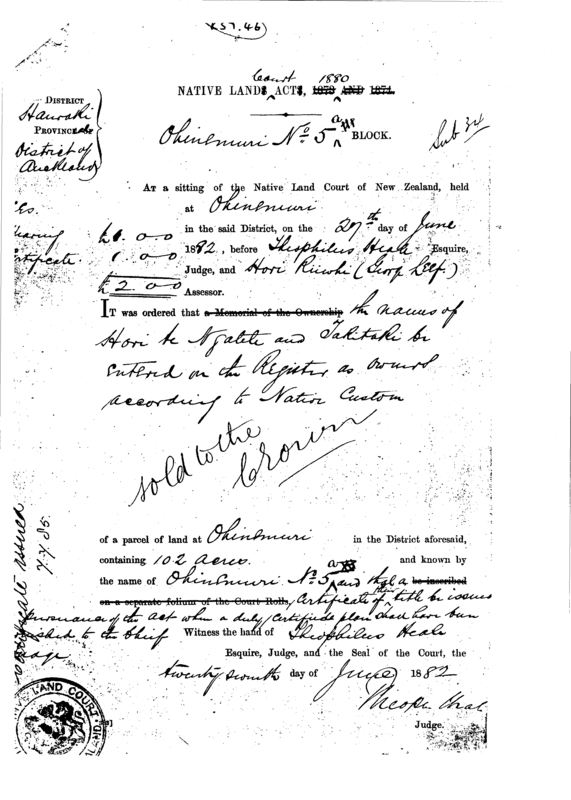 (K57.46)
Court 1880
NATIVE LANDS ACTS, 1873 AND 1874.
DISTRICT
Hauraki
PROVINCE
District of
Auckland
Ohinemuri No 5a BLOCK.
Sub 3rd
AT a sitting of the Native Land Court of New Zealand, held
at Ohinemuri
in the said District, on the 27th day of June
1882, before Theophilus Heale Esquire,
Judge, and Hori Riiwhi (George Leef)
Assessor.
hearing £1. 0-0
Certificate 1. 0-0
£2 0-0
IT was ordered that a Memorial of the Ownership the names of
Hori te Ngatete and Takitaki be
entered on the Register as owners
according to Native Custom
sold to the
Crown
of a parcel of land at Ohinemuri in the District aforesaid,
containing 102 acres. and known by
the name of Ohinemuri No 5a and that a be inscribed
on a separate folium of the Court Rolls, Certificate of title be issued
pursuance of the act when a duly certified plan shall have been
to the Chief Witness the hand of Theophilus Heale
Esquire, Judge, and the Seal of the Court, the
twenty seventh day of June 1882
Theoph Heale
Judge.
Certificate issued
7.7.85.
LAND COURT